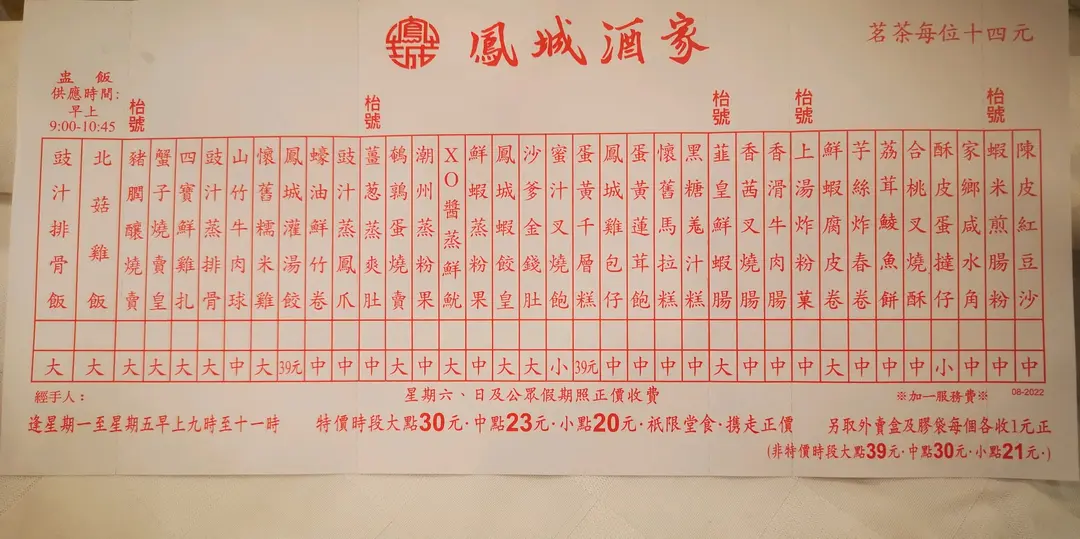 鳳城酒家
鳳城
茗茶每位十四元
盅飯
供應時間：
早上
9:00-10:45
枱號
枱號
枱號
枱號
枱號
陳皮紅豆沙 中
蝦米煎腸粉 中
家鄉咸水角 中
酥皮蛋撻仔 小
合桃叉燒酥 中
荔茸鯪魚餅 中
芋絲炸春卷 中
鮮蝦腐皮卷 大
上湯炸粉菓 中
香滑牛肉腸 中
香茜叉燒腸 中
韮皇鮮蝦腸 大
黑糖羗汁糕 中
懷舊馬拉糕 中
蛋黃蓮茸飽 中
鳳城雞包仔 中
蛋黃千層糕 39元
蜜汁叉燒飽 小
沙爹金錢肚 大
鳳城蝦餃皇 大
鮮蝦蒸粉果 中
XO醬蒸鮮魷 大
潮州蒸粉果 中
鵪鶉蛋燒賣 大
薑葱蒸爽肚 中
豉汁蒸鳳爪 中
蠔油鮮竹卷 中
鳳城灌湯餃 39元
懷舊糯米雞 大
山竹牛肉球 中
豉汁蒸排骨 大
四寶鮮雞扎 大
蟹子燒賣皇 大
豬膶釀燒賣 大
北菇雞飯 大
豉汁排骨飯 大
經手人：
星期六、日及公眾假期照正價收費
※加一服務費※
08-2022
逢星期一至星期五早上九時至十一時
特價時段大點30元·中點23元·小點20元·祇限堂食·携走正價
另取外賣盒及膠袋每個各收1元正
(非特價時段大點39元·中點30元·小點21元·)